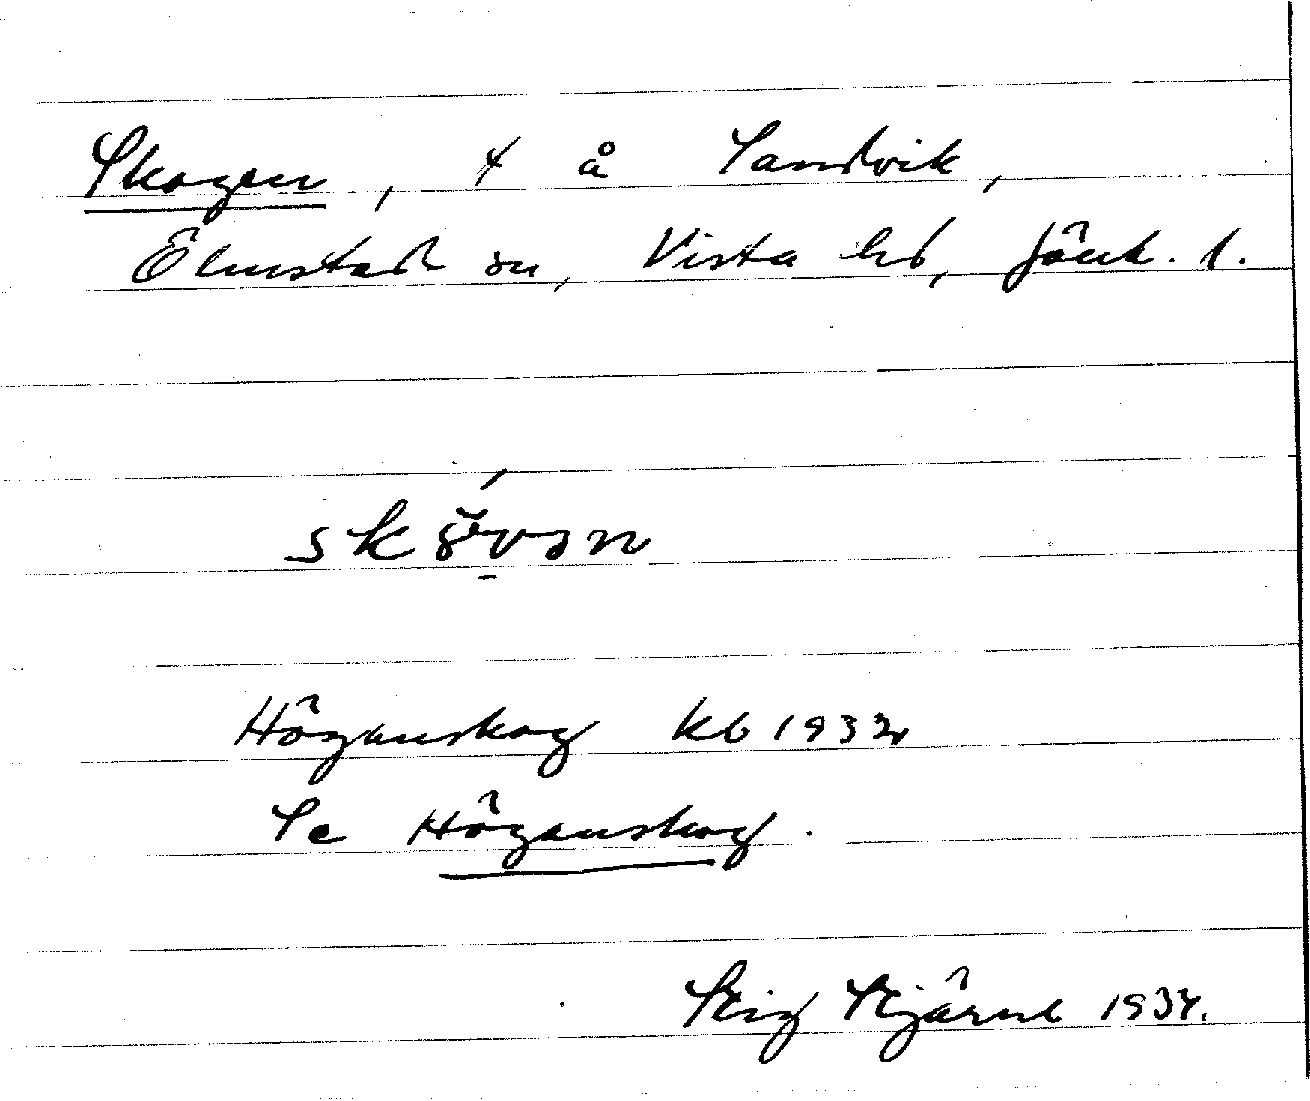 Skogen, t å Sandvik,
Ölmstad sn, Vista hd, Jönk. l.
Höganskog kb 1932
Se Höganskog.
Stig Stjärne 1934.